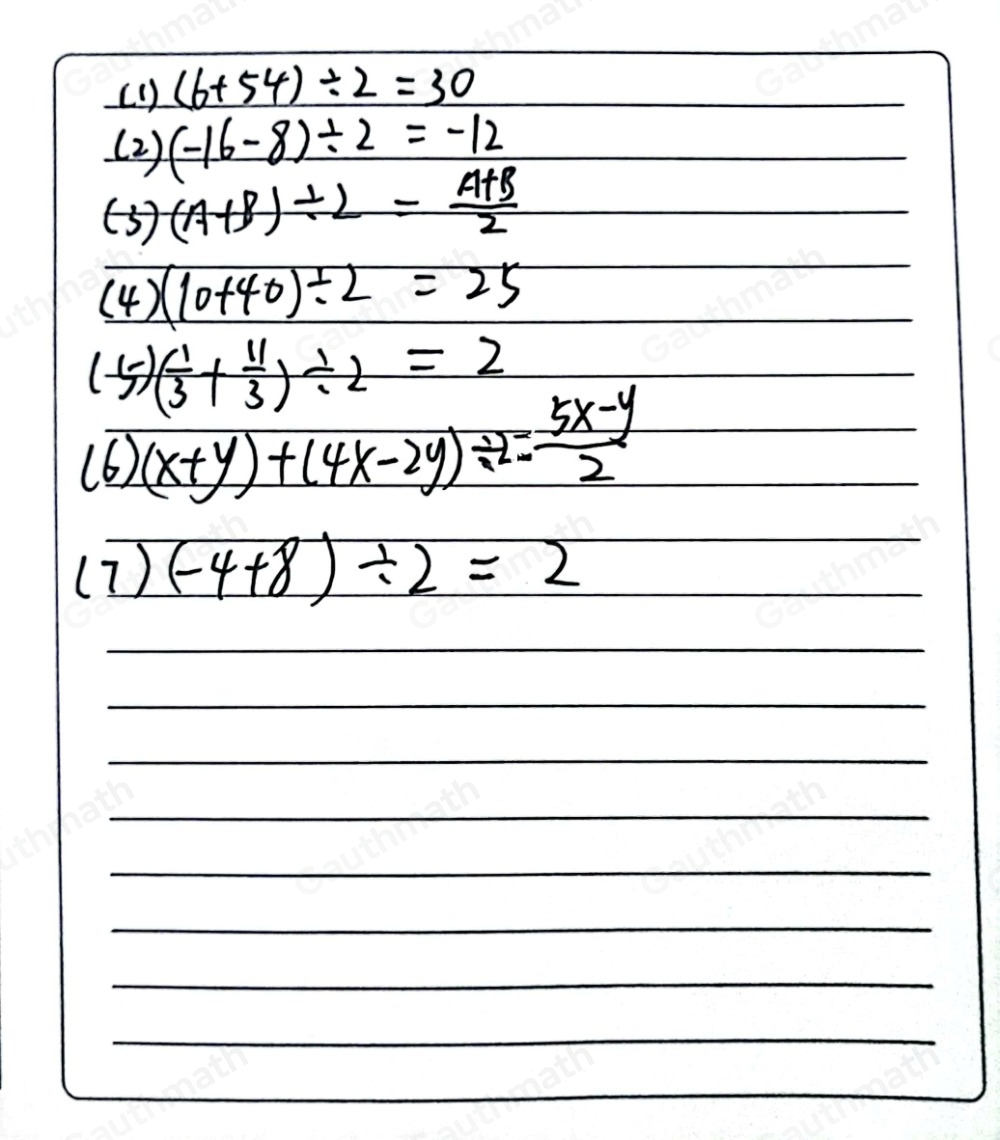 (1) (6+54) ÷ 2 = 30
(2) (-16-8) ÷ 2 = -12
(3) (A+B) ÷ 2 = \frac{A+B}{2}
(4) (10+40) ÷ 2 = 25
(5) (\frac{1}{3} + \frac{11}{3}) ÷ 2 = 2
(6) (x+y)+(4x-2y) ÷ 2 = \frac{5x-y}{2}
(7) (-4+8) ÷ 2 = 2
Gauthmath